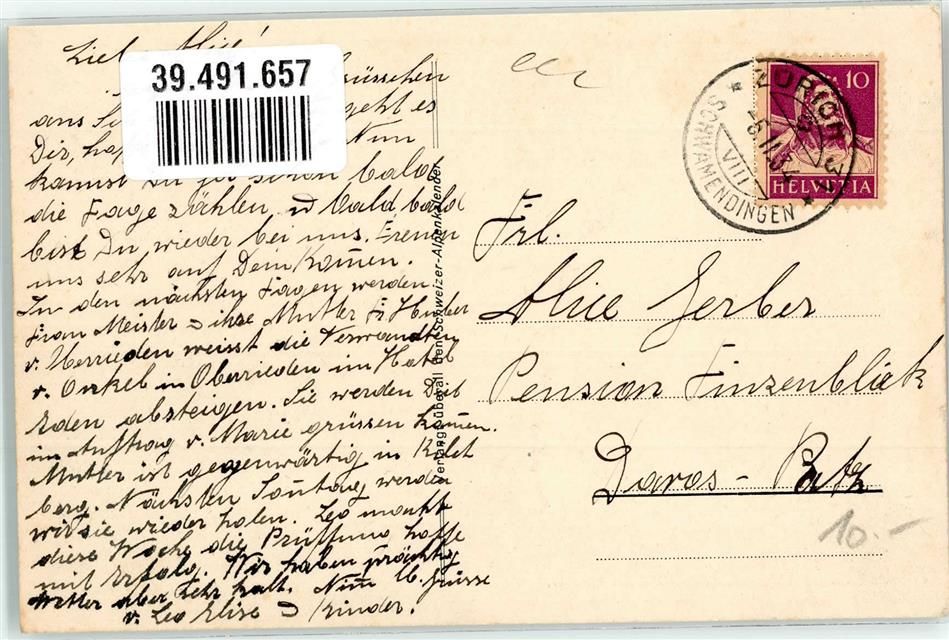 Lieb Alice!
39.491.657
ans
geht es
Dir, Nun
kannst Du schon bald
die Tage zählen, & bald bald
bist Du wieder bei uns. Freuen
uns sehr auf Dein Kom̅en.
In den nächsten Tagen werden
Frau Meister & ihre Mutter Fr. Huber
v. Herrieden weisst die Verwandten
v. Onkel in Oberrieden im Hotel
Eden absteigen. Sie werden Dich
im Auftrag v. Marie grüssen kom̅en.
Mutter ist gegenwärtig in Kilch
berg. Nächsten Sonntag werden
wir sie wieder holen. Leo macht
diese Woche die Prüffung hoffe
mit Erfolg. Wir haben prächtig
Wetter aber sehr kalt. Nim̅ lb. Grüsse
v. Leo Elise & Kinder.
Verlangt überall den Schweizer-Alpenkalender
10
HELVETIA
ZÜRICH
SCHWAMENDINGEN
VIII
Frl.
Alice Gerber
Pension Tinzenblick
Davos - Platz
10.-